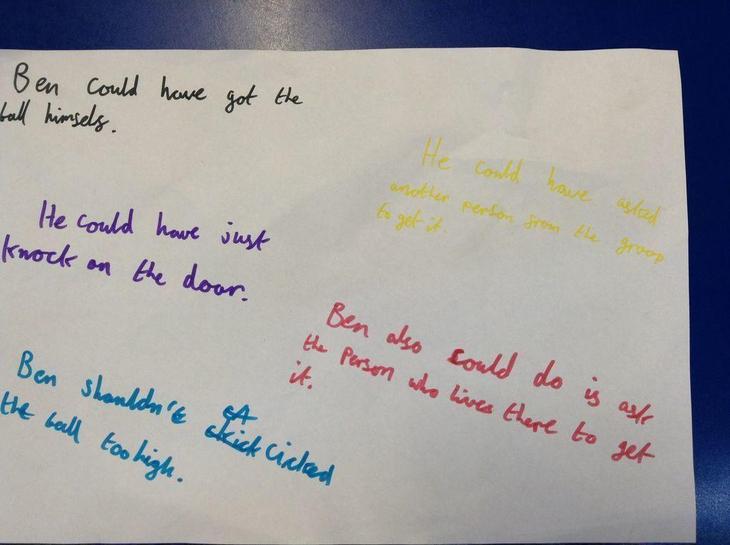 Ben could have got the
ball himsels.
He could have asked
another person from the group
to get it.
He could have just
knock on the door.
Ben also could do is ask
the person who lives there to get
it.
Ben shouldn't kick Cicked
the ball too high.